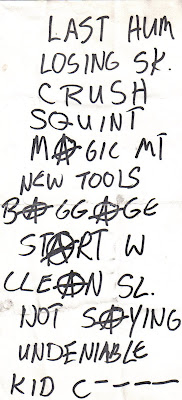 LAST HUM
LOSING SK.
CRUSH
SQUINT
MAGIC MT
NEW TOOLS
BAGGAGE
START W
CLEAN SL.
NOT SAYING
UNDENIABLE
KID C----